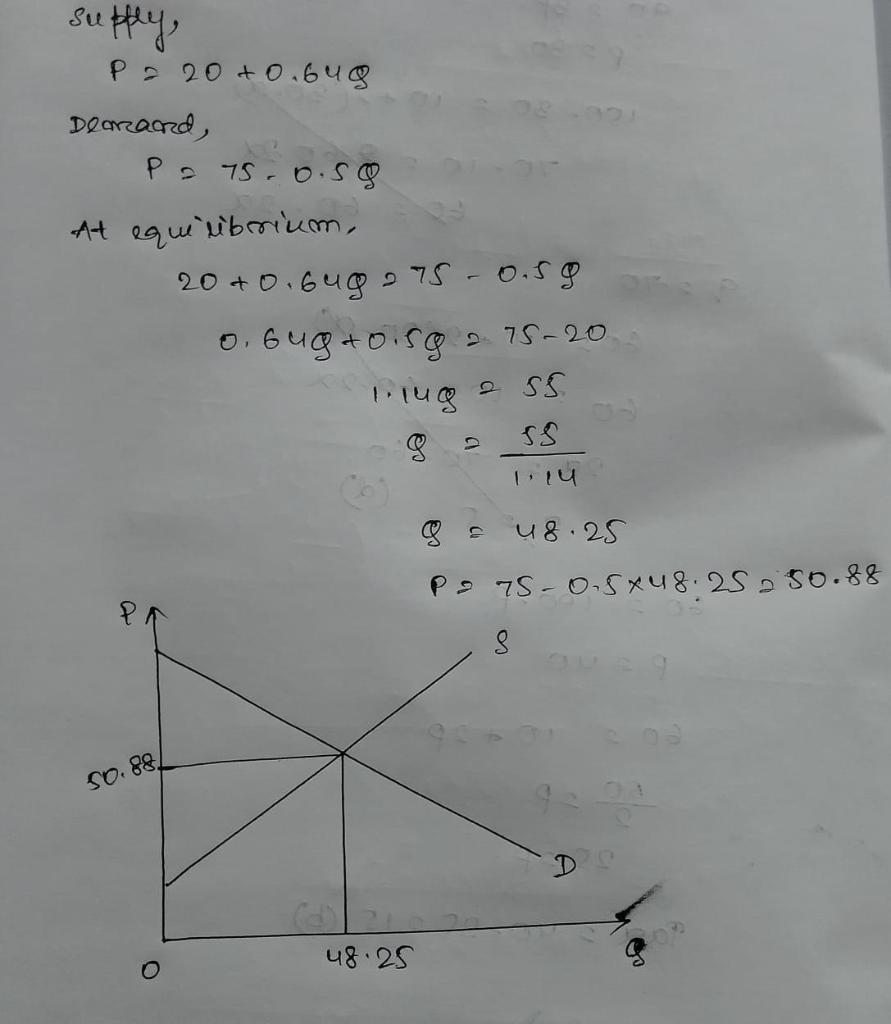 Supply,
P = 20 + 0.64Q
Demand,
P = 75 - 0.5Q
At equilibrium,
20 + 0.64Q = 75 - 0.5Q
0.64Q + 0.5Q = 75 - 20
1.14Q = 55
Q = 55
1.14
Q = 48.25
P = 75 - 0.5 x 48.25 = 50.88
P
S
50.88
D
O
48.25
Q